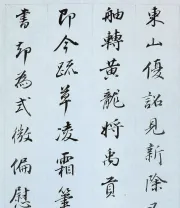 東山優詔見新除
舳轉黃龍將禹貢
即今疏草凌霜筆
書卻為式微偏慰